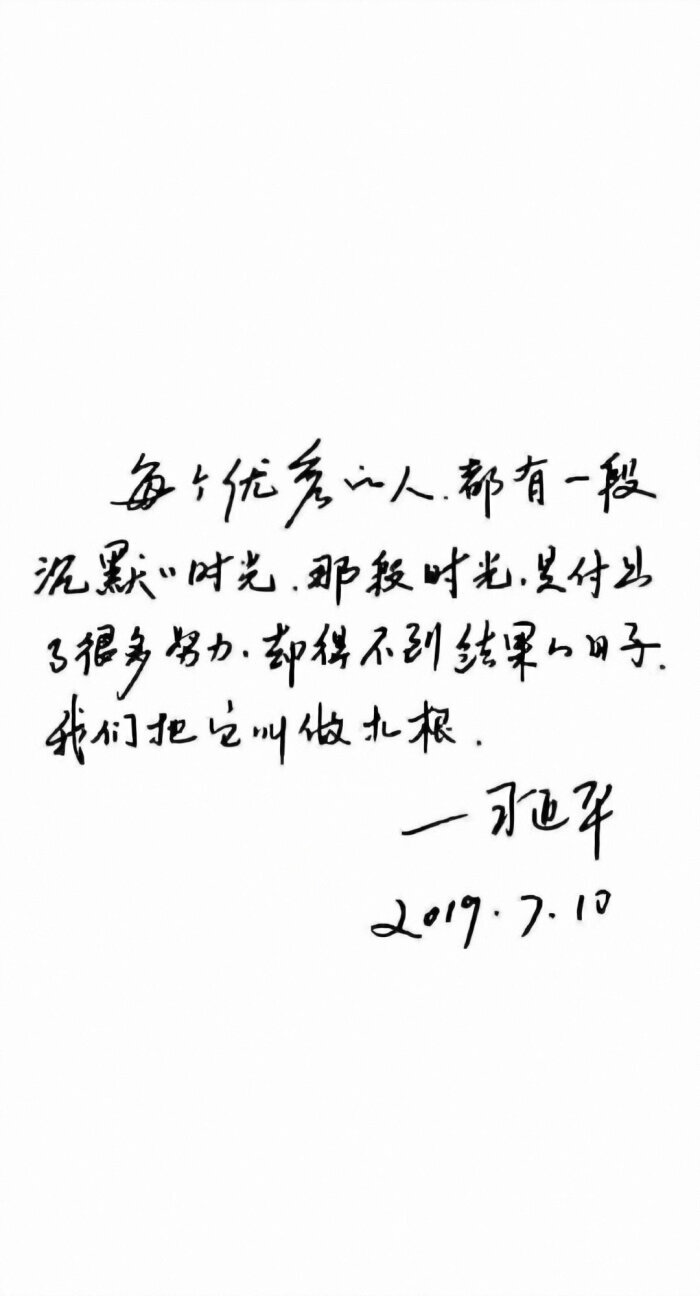 每个优秀的人.都有一段
沉默的时光.那段时光.是付出
了很多努力.却得不到结果的日子.
我们把它叫做扎根.
一习延军
2019.7.10